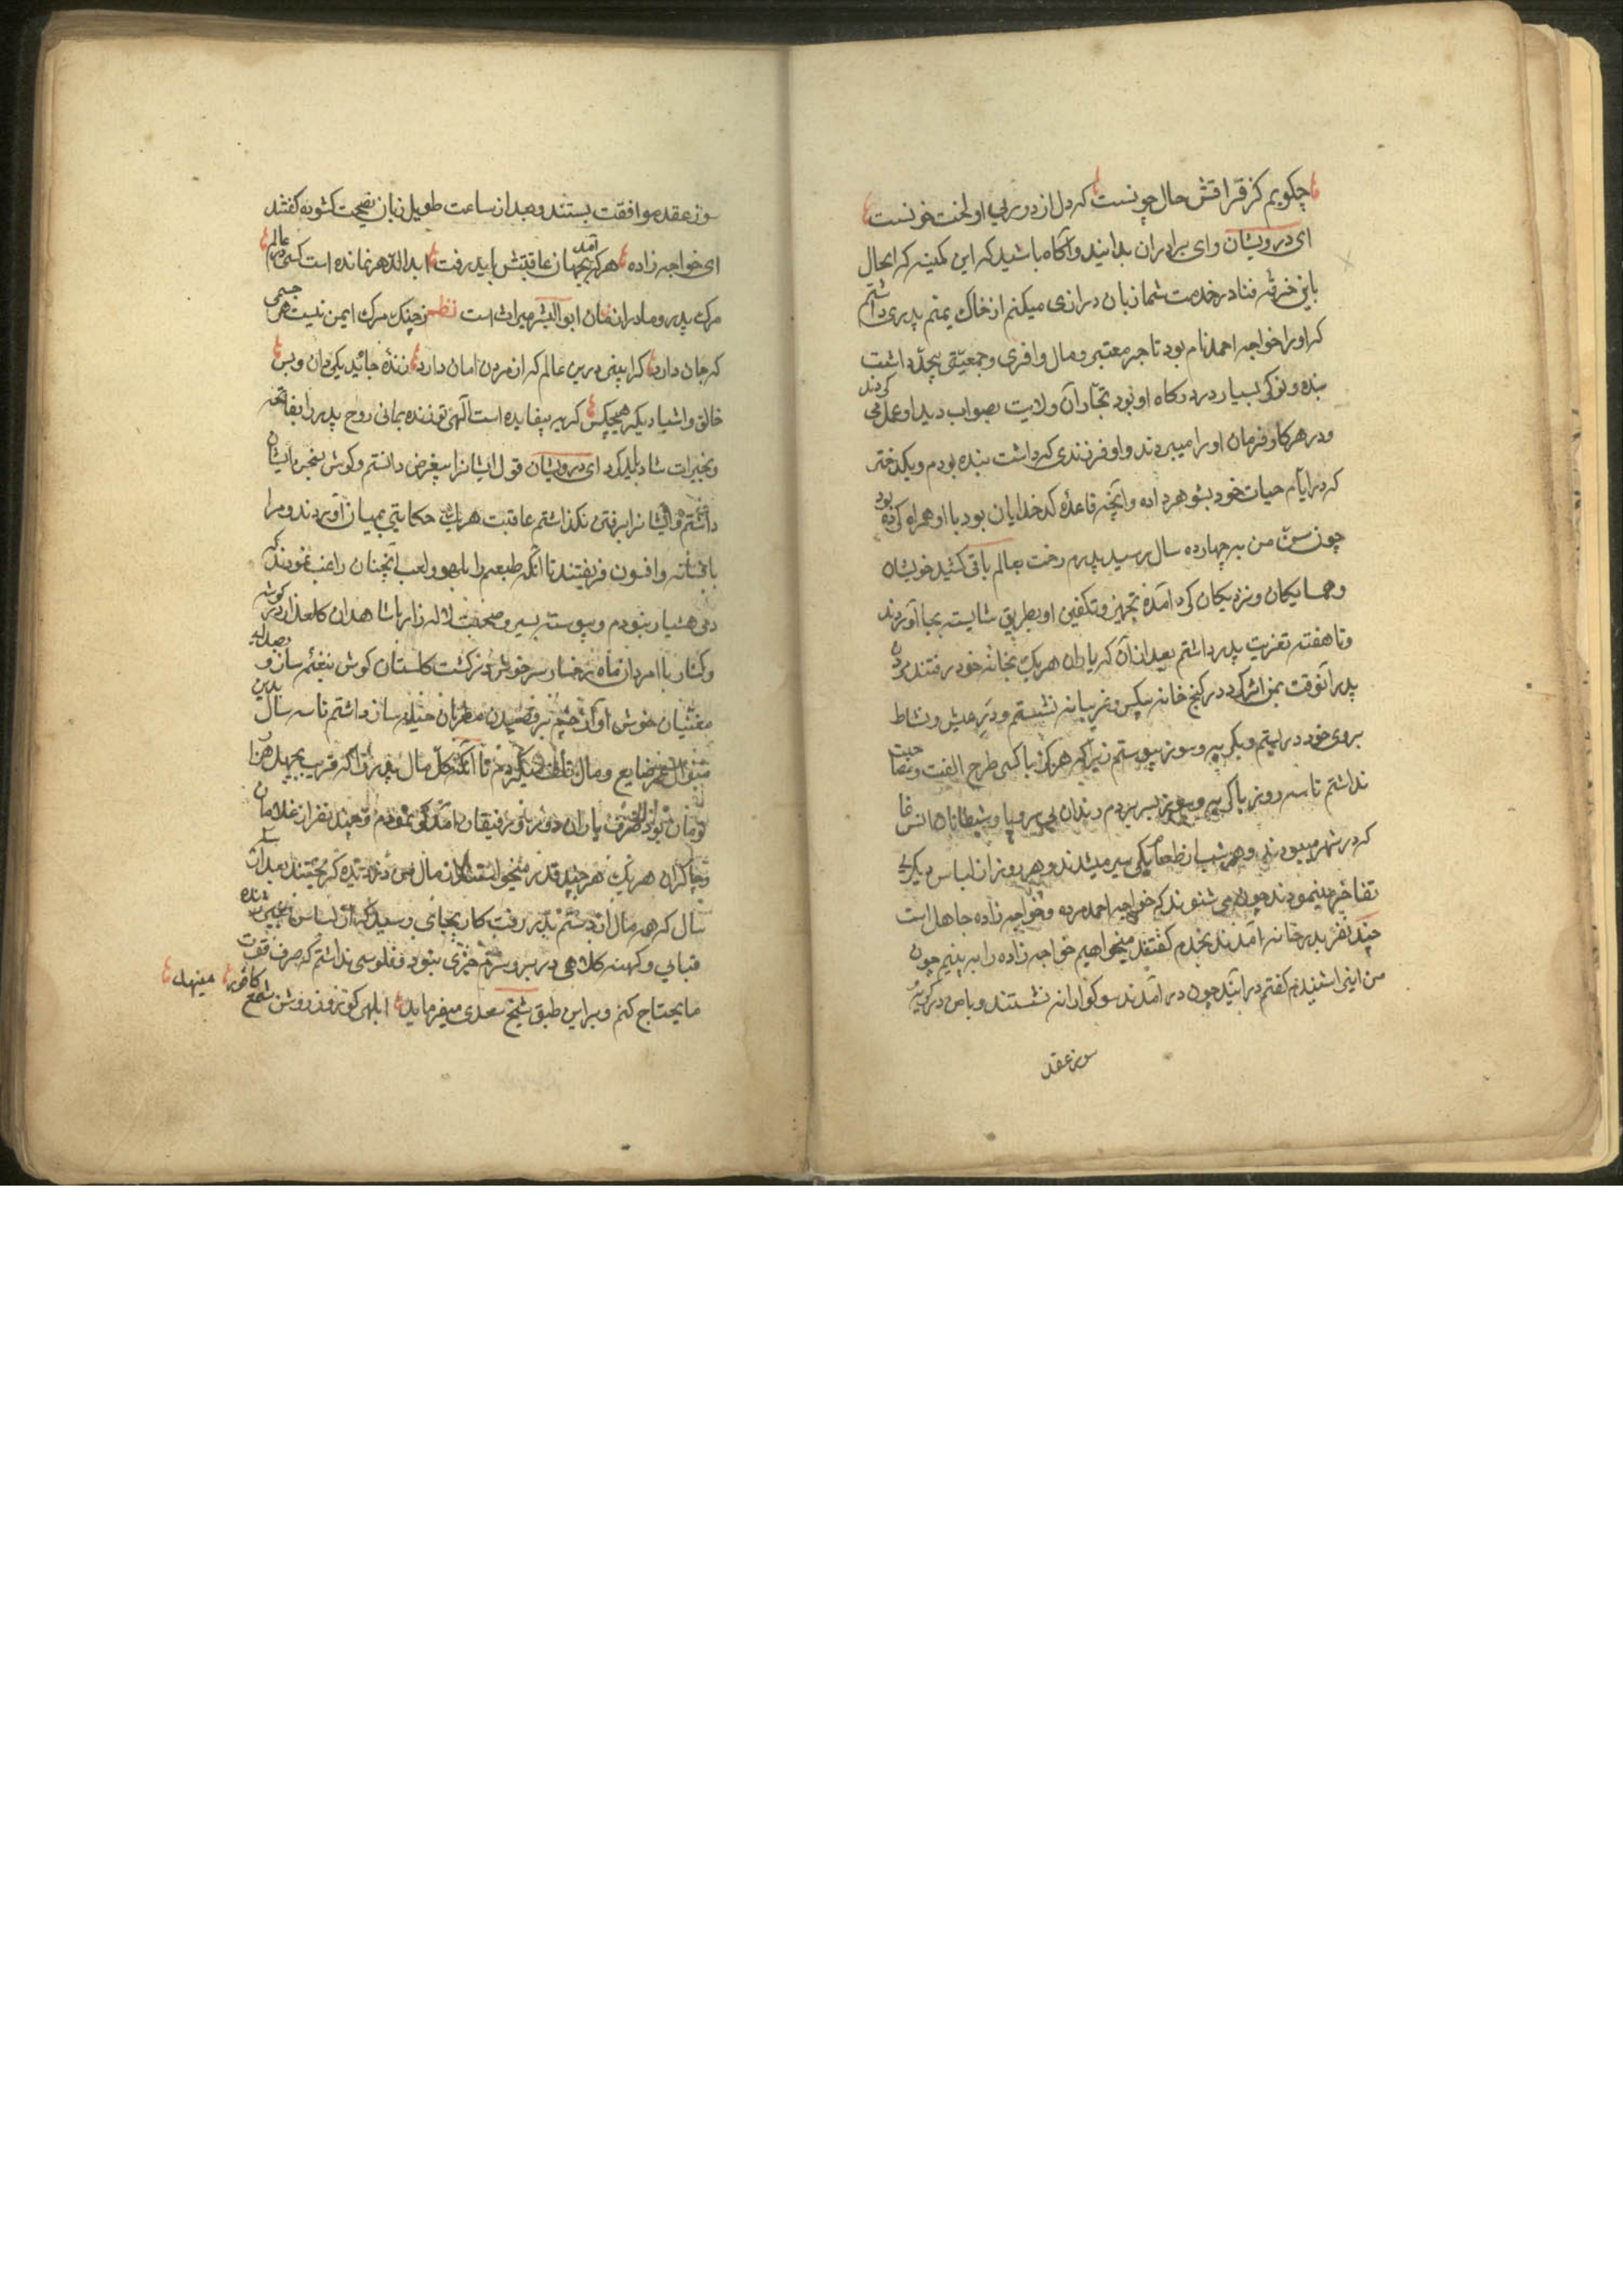 چکویم کز فراقش حال چونست که دل از دوری او لخت خونست
ای درویشان و ای برادران بدانید و آکاه باشید که این کمینه که الحال
باین خرقه فنا در خدمت شما زبان درازی میکنم از خاک یمنم پدری داشتم
که اورا خواجه احمد نام بود تاجر معتبر و مال وافری و جمعیتی بیحد داشت
بنده و نوکر بسیار در درکاه او بود تجار آن ولایت بصواب دید او عمل می کردند
و در هر کار فرمان اورا میبردند و او فرزندی که داشت بنده بودم و یکدختر
که در ایام حیات خود بشوهر داده و آنچه قاعدهٔ کدخدایان بود با او همراه کرده بود
چون سن من بچهارده سال رسید پدرم رخت بعالم باقی کشید خویشان
و همسایکان و نزدیکان کرد آمده تجهیز و تکفین او بطریق شایسته بجا آوردند
و تا هفته تعزیت پدر داشتم بعد از آن که یاران هر یک بخانه خود رفتند من
پدر آنوقت بمن اثر کرد در کنج خانه بیکس غریبانه نشستم و در عیش و نشاط
بروی خود در بستم و بکریه و سوز پیوستم زیرا که هرکز با کسی طرح الفت و مصاحبت
نداشتم تا سه روز با کریه و سوز بسر بردم رندان بی سر و پا و شیطانان انس
که در شهر میبودند و هر شب از طعام یکی سیر میشدند و هر روز از لباس دیکری
تفاخر مینمودند چون می شنوند که خواجه احمد مرده و خواجه زاده جاهل است
چند نفر بدر خانه آمدند بخدم کفتند میخواهیم خواجه زاده را به بینیم چون
من اینرا شنیدم کفتم در آیند چون در آمدند سوکوارانه نشستند و با من در کریه و
سوز عقد
سوز عقد موافقت بستند و بعد از ساعت طویل زبان نصیحت کشوده کفتند
ای خواجه زاده هر که آمد بجهان عاقبتش باید رفت ابدالدهر نمانده است کسی در عالم
مرک پدر و مادران مان ابوالبشر میراث است نظم ز چنک مرک ایمن نیست هر جسمی
که جان دارد کرا بینی درین عالم که از مردن امان دارد زندهٔ جاوید یکی دان و بس
خالق و اشیا دیکر هیچکس کریه بیفایده است الهی تو زنده بمانی روح پدر را بفاتحه
و بخیرات شاد باید کرد ای درویشان قول ایشانرا بیغرض دانستم و کوش بسخن ایشان
داشتم و ایشانرا برفتن نکذاشتم عاقبت هر یک حکایتی بمیان آوردند و مرا
بافسانه و افسون فریفتند تا آنکه طبعم را بلهو و لعب آنچنان راغب نمودند که
دمی هشیار نبودم و پیوسته بسیر و صحبت لاله زار با شاهدان کلعذار در کوشه
و کنار با امردان ماه رخسار سر خوش در کشت کلستان کوش بنغم ساز و
مغنیان خوش آواز چشم برقصیدن مطربان حیله ساز داشتم تا سه سال بدین
منوال عمر ضایع و مال تلف میکردم تا آنکه کل مال پدر را که قریب بچهل هزار
تومان بود صرف یاران و رفیقان نمودم و چند نفر از غلامان
و چاکران هر یک هر چند قدر میخواستند از مال من دزدیده کریختند بعد از سه
سال که همه مال از دستم بدر رفت کار بجای رسید که از لباس بغیر ژنده
قبایی و کهنه کلاهی در بر و سرم چیزی نبود و فلوسی نداشتم که صرف قوت
ما یحتاج کنم و براین طبق شیخ سعدی میفرماید ابلهی کو روز روشن شمع کافوری مینهد